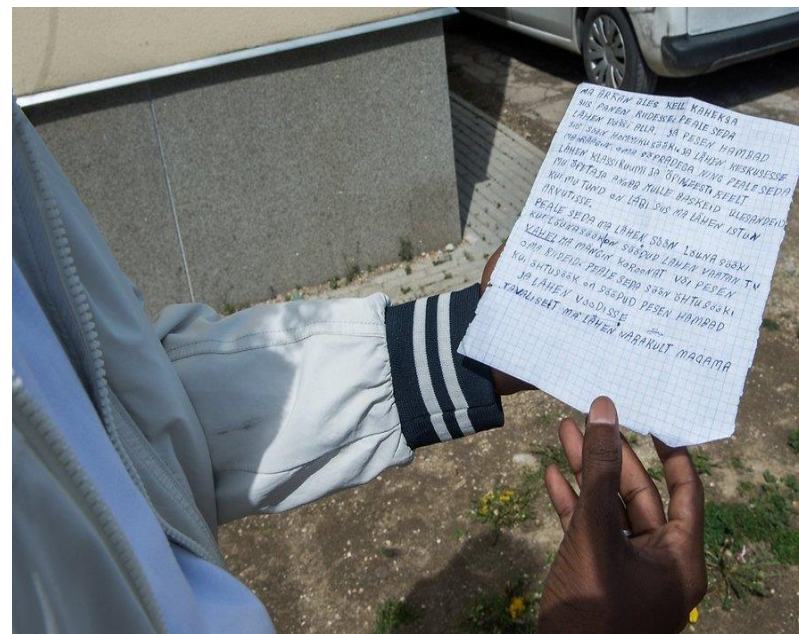 MA ÄRKAN ÜLES KELL KAHEKSA
SIIS PANEN RIIDESSE. PEALE SEDA
LÄHEN DUŠŠI ALLA. JA PESEN HAMBAD
SIIS SÖÖN HOMMIKUSÖÖKI JA LÄHEN KESKUSESSE
MA RÄÄGIN OMA SÕPRADEGA NING PEALE SEDA
LÄHEN KLASSIRUUMI JA ÕPIN EESTI KEELT
MU ÕPETAJA ANNAB MULLE RASKEID ÜLESANDEID
KUI MU TUND ON LÄBI SIIS MA LÄHEN ISTUN
ARVUTISSE.
PEALE SEDA MA LÄHEN SÖÖN LÕUNA SÖÖKI
KUI LÕUNASÖÖK ON SÖÖDUD LÄHEN VAATAN TV
VAHEL MA MÄNGIN KOROONAT VÕI PESEN
OMA RIIDEID. PEALE SEDA SÖÖN ÕHTUSÖÖKI
KUI ÕHTUSÖÖK ON SÖÖDUD PESEN HAMBAD
JA LÄHEN VOODISSE.
TAVALISELT MA LÄHEN VARAKULT MAGAMA